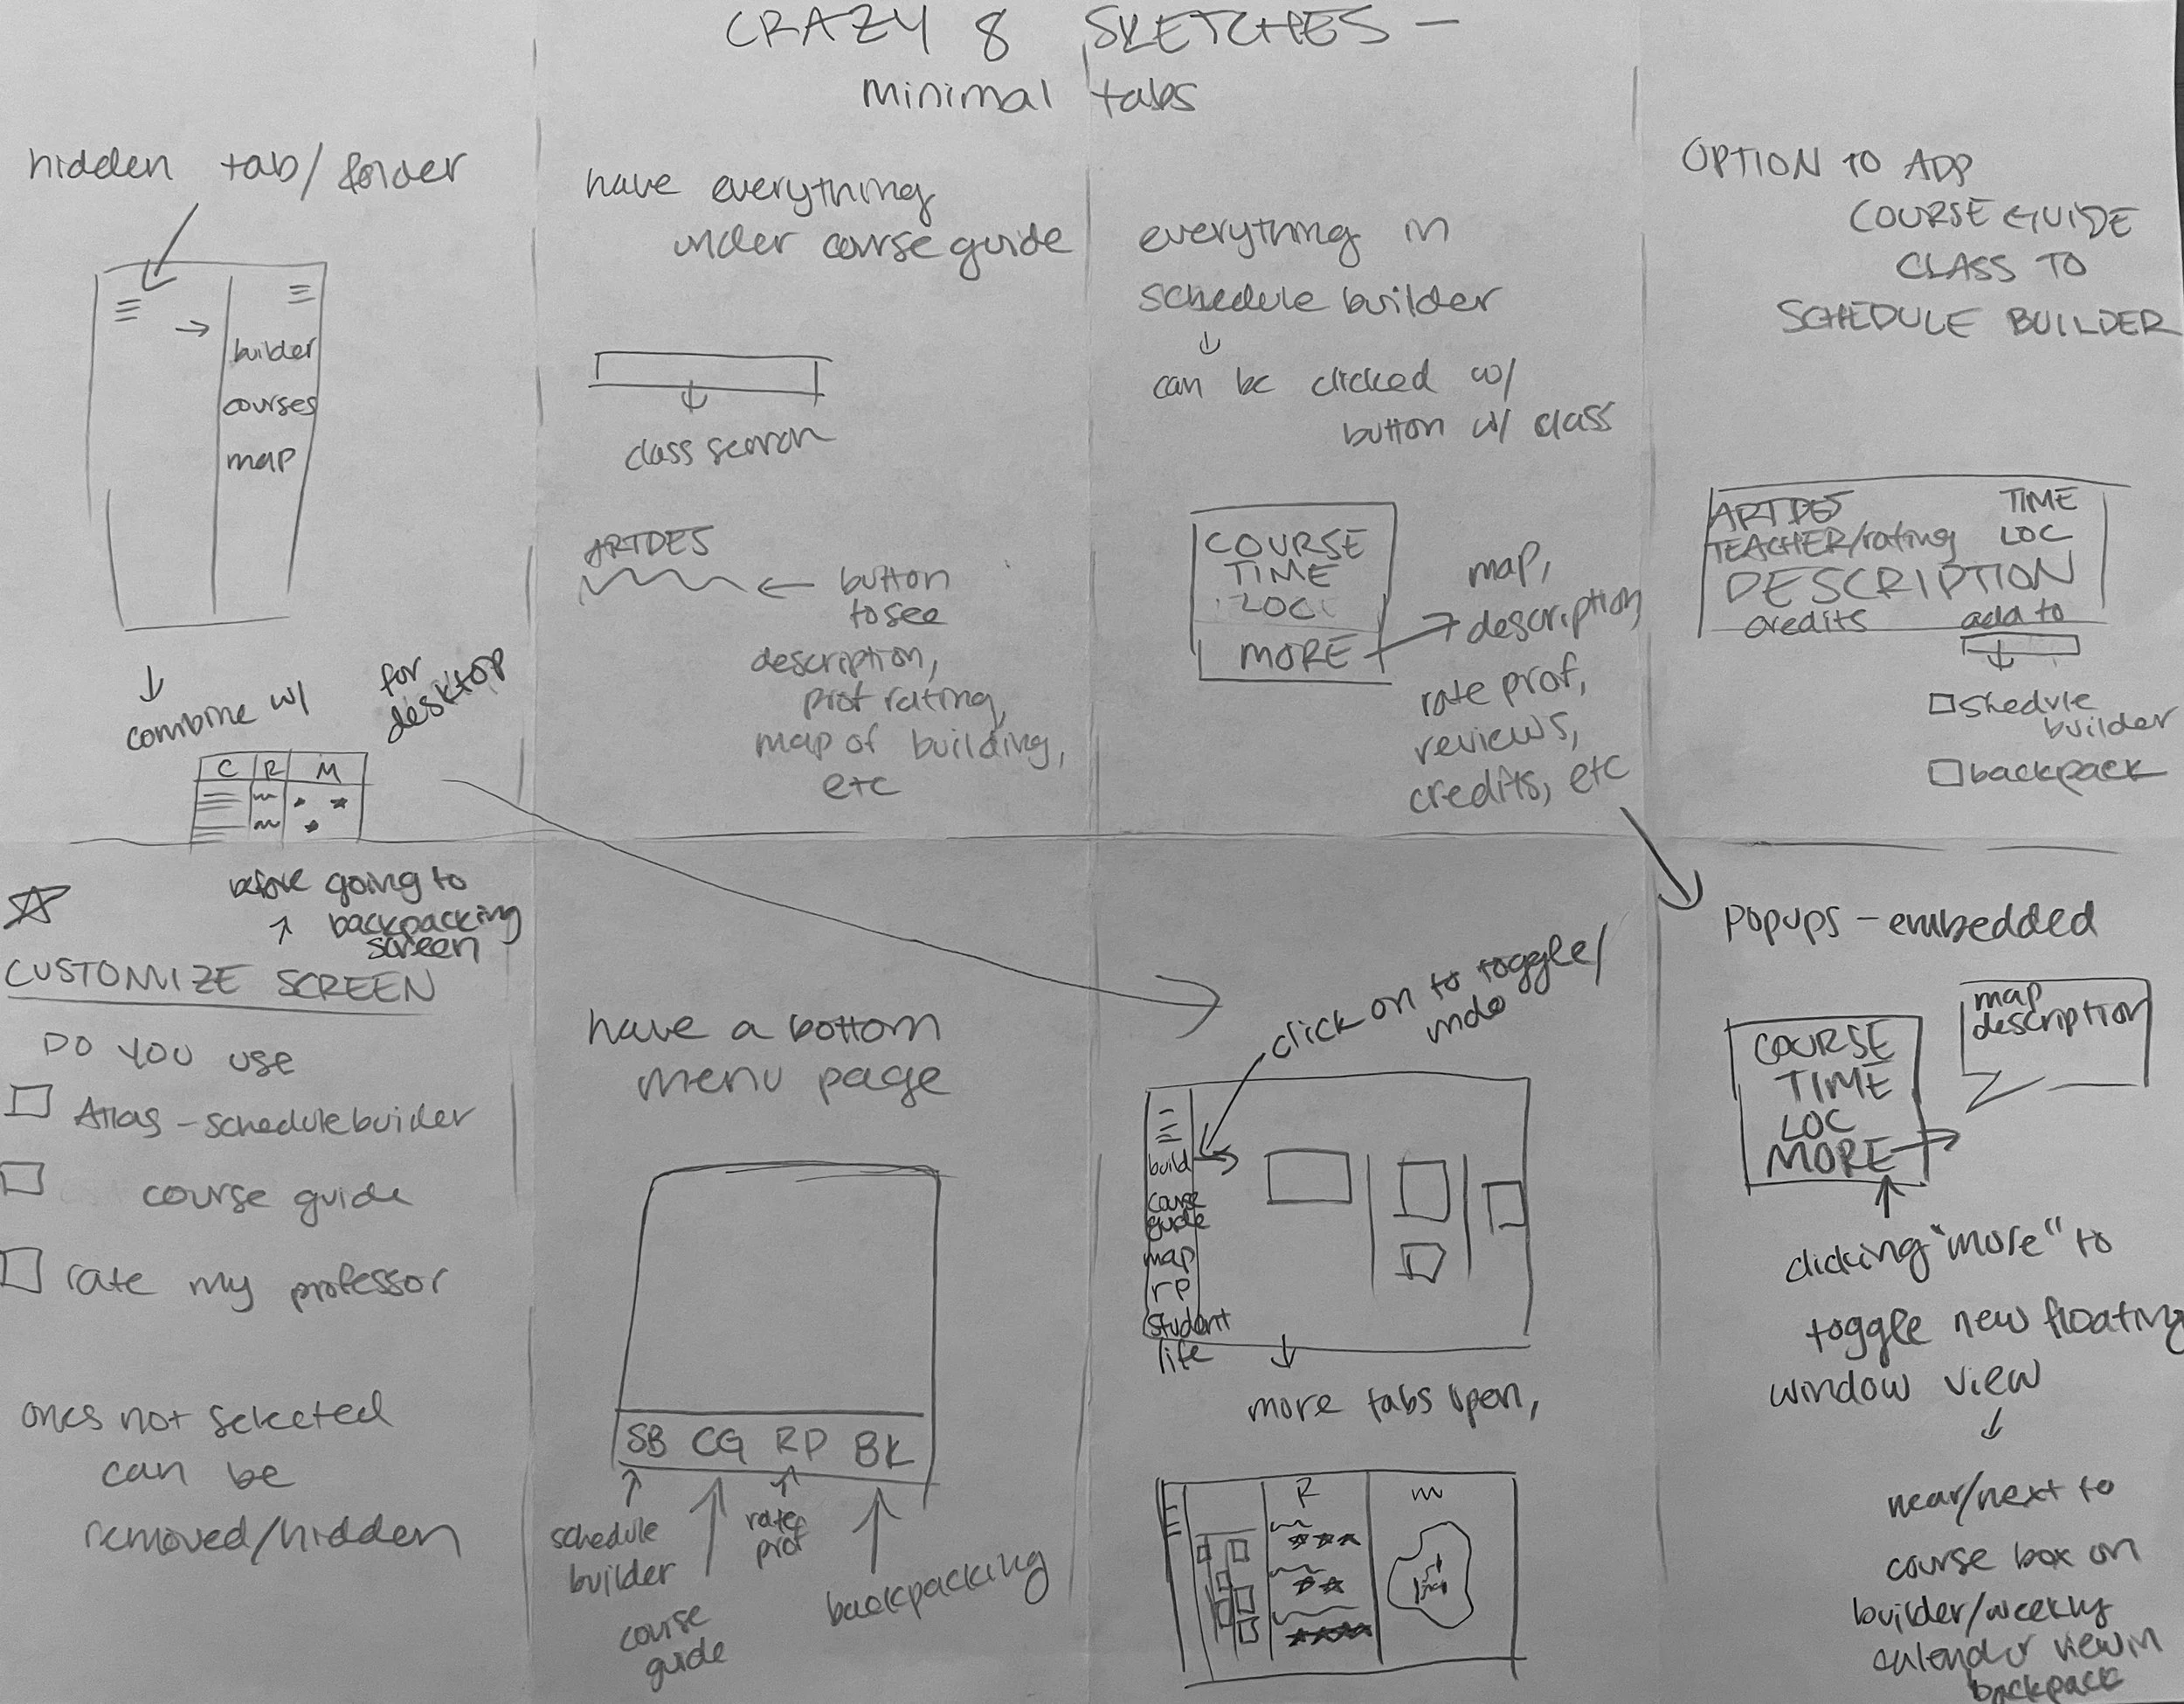 CRAZY 8 SKETCHES -
minimal tabs
hidden tab/folder
builder
courses
map
combine w/
for
desktop
C R M
have everything
under course guide
class search
ARTDES
button
to see
description,
prof rating,
map of building,
etc
everything in
schedule builder
can be clicked w/
button w/ class
COURSE
TIME
LOC
MORE
map,
description,
rate prof,
reviews,
credits, etc
OPTION TO ADD
COURSE GUIDE
CLASS TO
SCHEDULE BUILDER
ARTDES TIME
TEACHER/rating LOC
DESCRIPTION
credits add to
shedule
builder
backpack
before going to
backpacking
screen
CUSTOMIZE SCREEN
DO YOU USE
Atlas - schedule builder
course guide
rate my professor
ones not selected
can be
removed/hidden
have a bottom
menu page
SB CG RP BK
schedule
builder
course
guide
rate
prof
backpacking
click on to toggle/
undo
build
course
guide
map
rp
student
life
more tabs open,
R m
popups - embedded
map
description
COURSE
TIME
LOC
MORE
clicking "more" to
toggle new floating
window view
near/next to
course box on
builder/weekly
calender view in
backpack